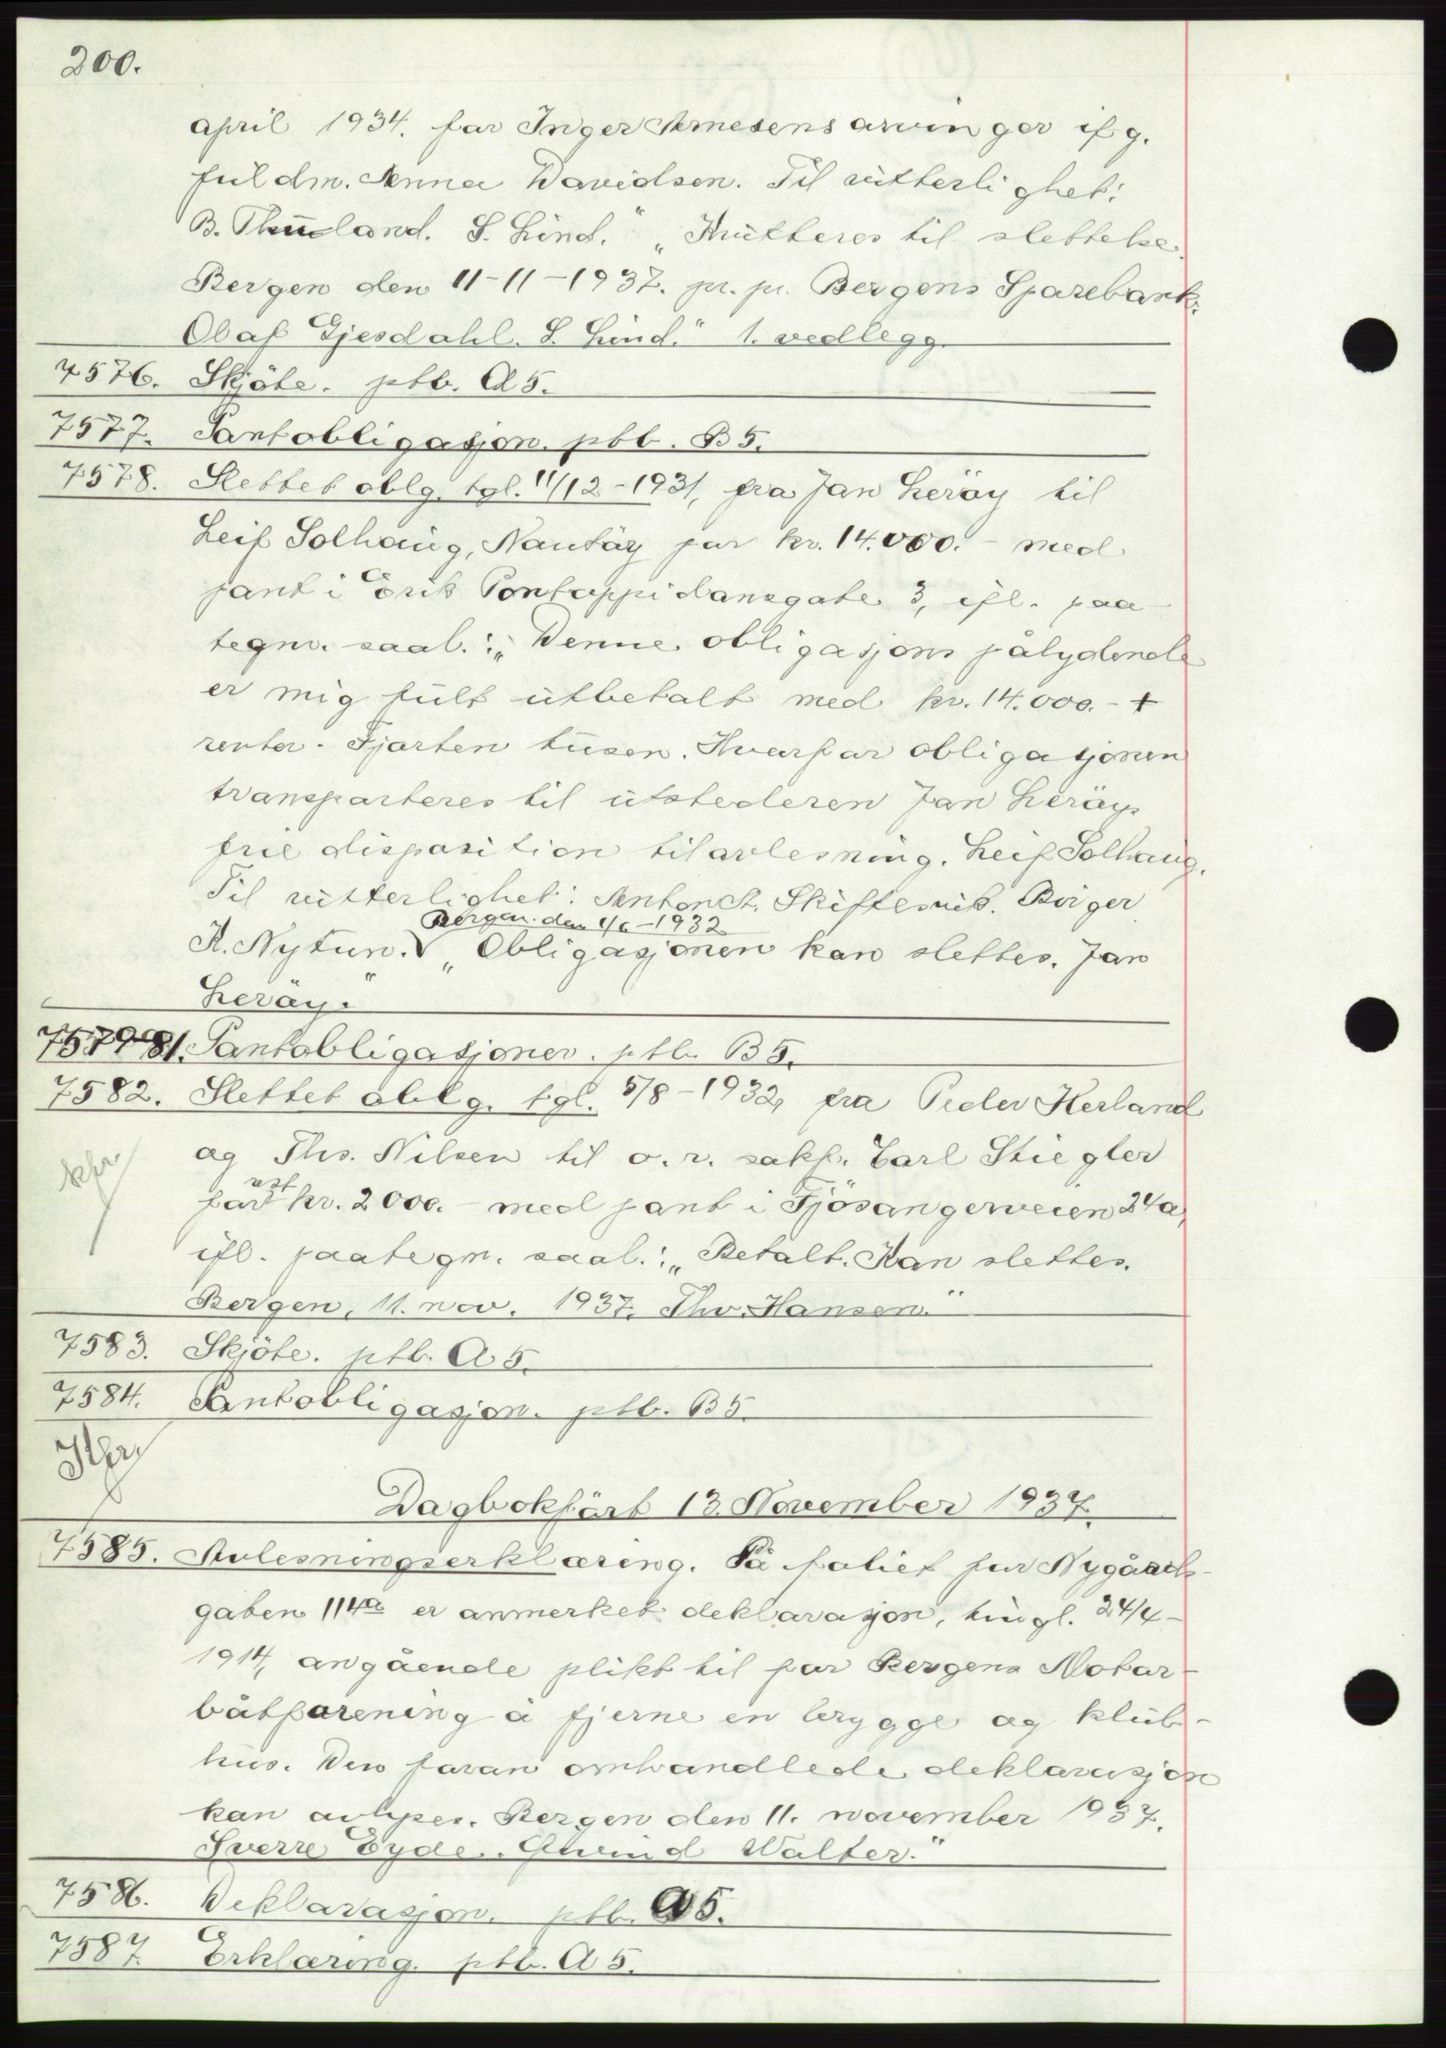 200.
april 1934. for Inger Arnesens arvinger ifg.
fuldm. Anna Davidsen. Til vitterlighet:
B. Thuland. S. Lind." „Kvitteres til slettelse.
Bergen den 11-11-1937. pr. pr. Bergens Sparebank.
Olaf Gjesdahl. S. Lind." 1. vedlegg.
7576. Skjöte. ptb. A 5.
7577. Pantobligasjon. ptb. B 5.
7578. Slettet oblg. tgl. 11/12-1931, fra Jan Leröy til
Leif Solhaug, Nautöy for kr. 14.000.- med
pant i Erik Pontoppidansgate 3, ifl. paa-
tegn. saal.: „Denne obligasjons pålydende
er mig fult utbetalt med kr. 14.000.- +
renter. Fjorten tusen. Hvorfor obligasjonen
transporteres til utstederen Jan Leröys
frie disposition til avlesning. Leif Solhaug.
Til vitterlighet: Anton Chr. Skiftesvik. Birger
Bergen. den 1/6-1932
K. Nytun. V „Obligasjonen kan slettes. Jan
Leröy."
7579-81. Pantobligasjoner. ptb. B 5.
7582. Slettet oblg. tgl. 5/8-1932, fra Peder Herland
og Ths. Nilsen til o.r. sakf. Carl Stiegler
rest
for kr. 2000.- med pant i Fjösangerveien 24a,
ifl. paategn. saal.: „Betalt. Kan slettes.
Bergen, 11. nov. 1937. Thv. Hansen."
7583. Skjöte. ptb. A 5.
7584. Pantobligasjon. ptb. B 5.
Dagbokfört 13. November 1937.
7585. Avlesningserklæring. På foliet for Nygårds-
gaten 114a er anmerket deklarasjon, tingl. 24/4-
1914, angående plikt til for Bergens Motor-
båtforening å fjerne en brygge og klub-
hus. Den foran omhandlede deklarasjon
kan avlyses. Bergen den 11. november 1937.
Sverre Eyde. Eivind Walter."
7586. Deklarasjon. ptb. A 5.
7587. Erklæring. ptb. A 5.